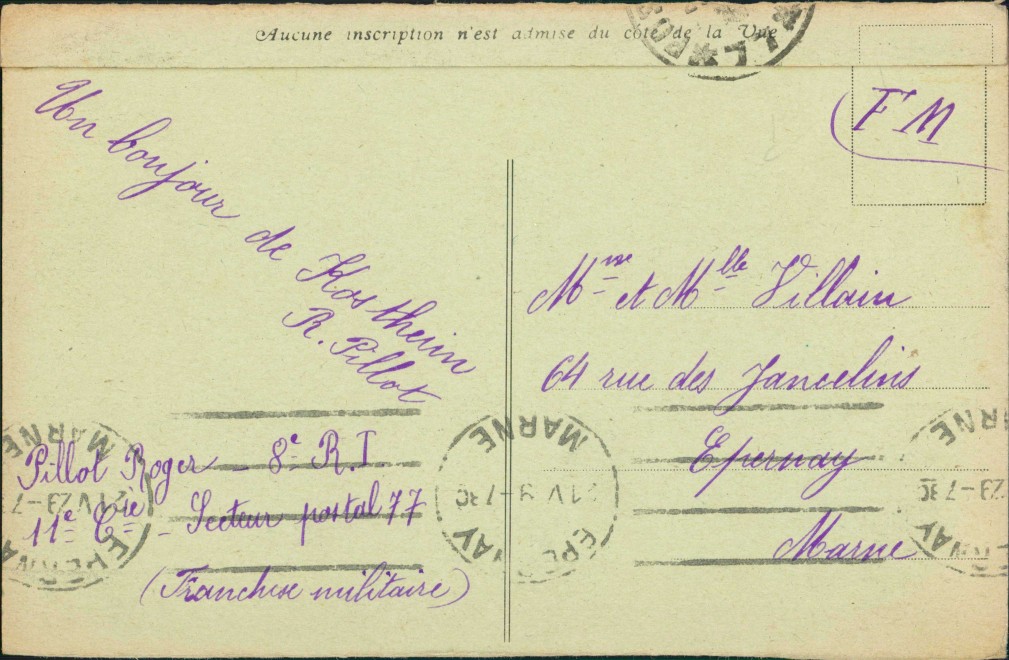 Aucune inscription n'est admise du côté de la Vue
F M
Un bonjour de Kostheim
R. Pillot
Mme et Mlle Villain
64 rue des Jancelins
Epernay
Marne
Pillot Roger - 8e R.I.
11e Cie - Secteur postal 77
(Franchise militaire)
MARNE
EPERNAY
MARNE
21 V 23-7 30
EPERNAY
MARNE
23-7 30
EPERNAY